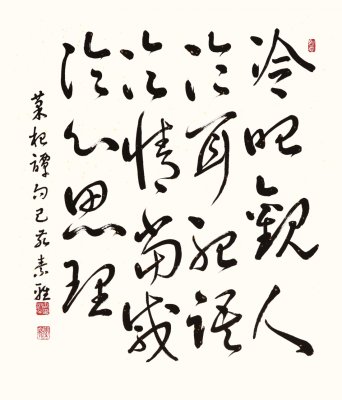 冷眼觀人
冷耳聽語
冷情當感
冷心思理
菜根譚句己亥素雅